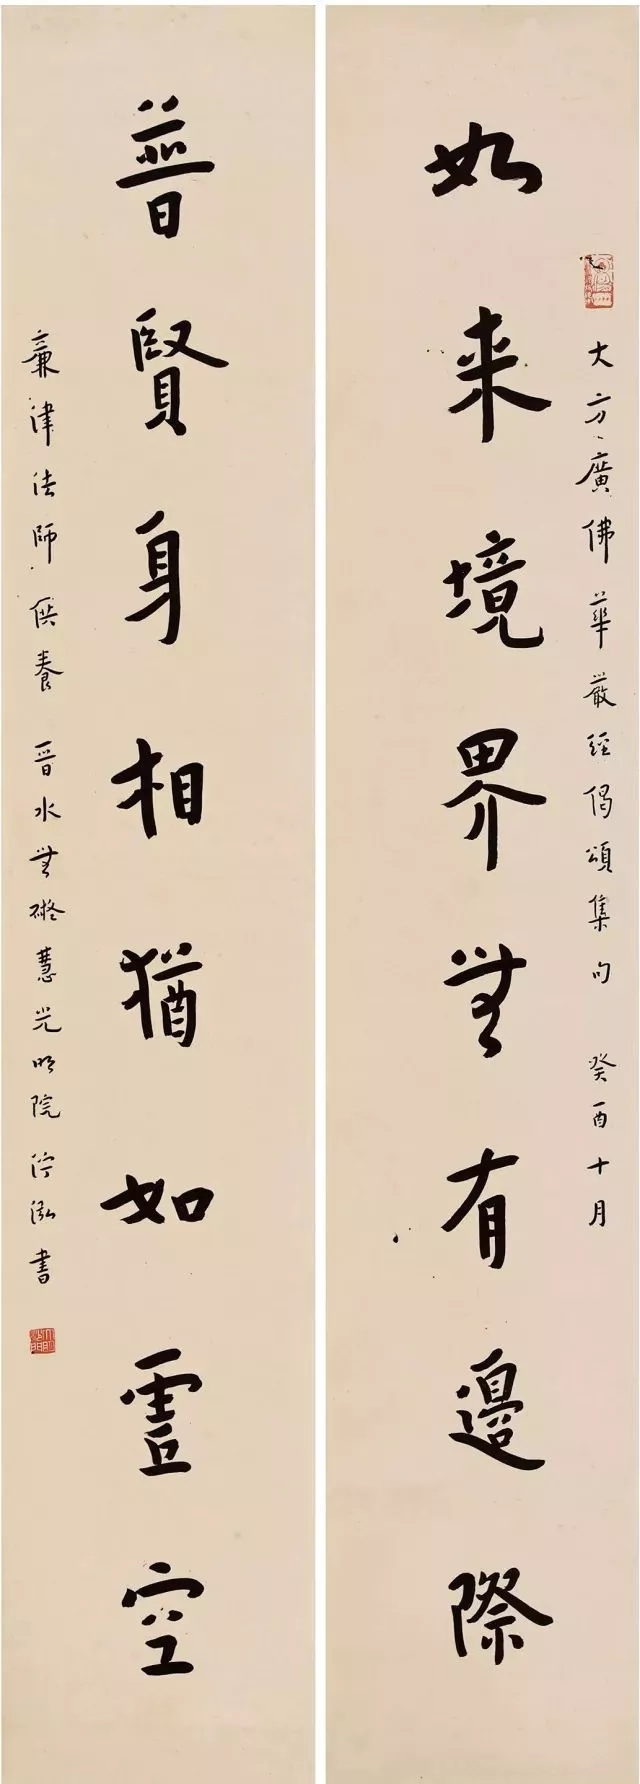 大方廣佛華嚴經偈頌集句 癸酉十月
如来境界無有邊際
普賢身相猶如虛空
津法師供養 晉水無礙慧光明院泓書